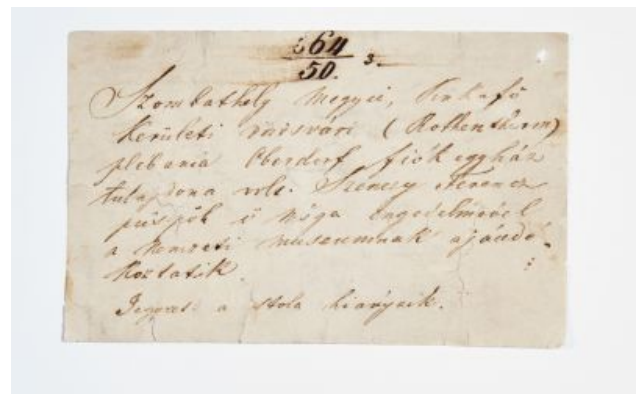 564
50. 3.
Szombathely megyei,
kerületi vörsvári (Rothenthurm)
plebania Oberdorf fiók egyház
tulajdona volt. Szenczy Ferencz
püspök ő Nága engedelmével
a nemzeti museumnak ajándé-
koztatik.
a stola hiányzik.